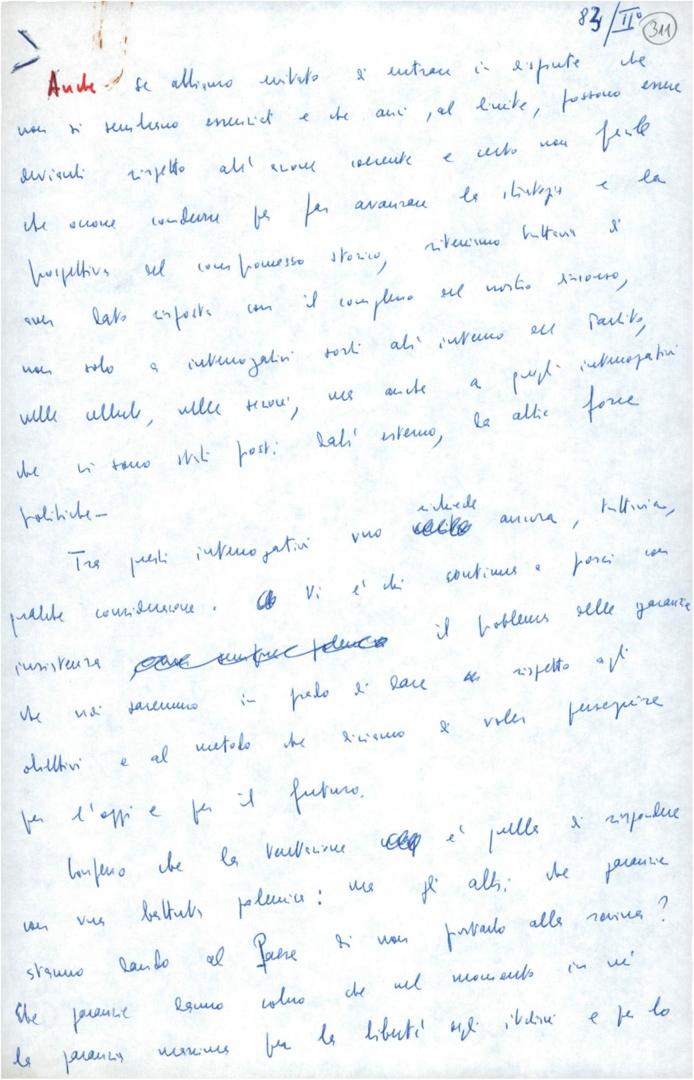 83/II° 311
Anche se abbiamo evitato di entrare in dispute che
non ci sembrano essenziali e che anzi, al limite, possono essere
devianti rispetto all'azione coerente e certo non facile
che occorre condurre per far avanzare la strategia e la
prospettiva del compromesso storico, riteniamo tuttavia di
aver dato risposta con il complesso del nostro discorso,
non solo a interrogativi sorti all'interno del Partito,
nelle cellule, nelle sezioni, ma anche a quegli interrogativi
che ci sono stati posti dall'esterno, da altre forze
politiche—
Tra questi interrogativi uno richiede ancora, tuttavia,
qualche considerazione. Vi è chi continua a porci con
insistenza il problema delle garanzie
che noi saremmo in grado di dare rispetto agli
obiettivi e al metodo che diciamo di voler perseguire
per l'oggi e per il futuro.
Confesso che la tentazione è quella di rispondere
con una battuta polemica: ma gli altri che garanzie
stanno dando al Paese di non portarlo alla rovina?
Che garanzie danno coloro che nel momento in cui
la garanzia massima per la libertà degli italiani e per lo